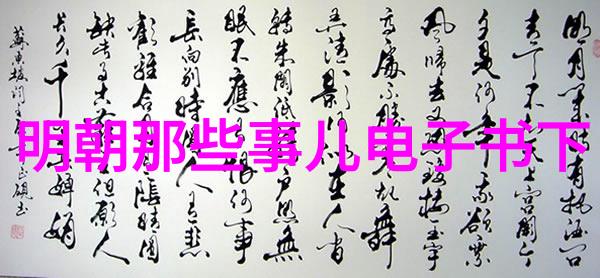 明朝那些事儿电子书下
明月几时有把酒问
青天不知天上宫阙今
夕是何年我欲乘
风归去又恐琼楼玉宇
高处不胜寒起舞
弄清影何似在人间
转朱阁低绮户照无
眠不应有恨何事
长向别时圆人有悲
欢离合月有阴晴圆
缺此事古难全但愿人
长久千里共婵娟
苏东坡词